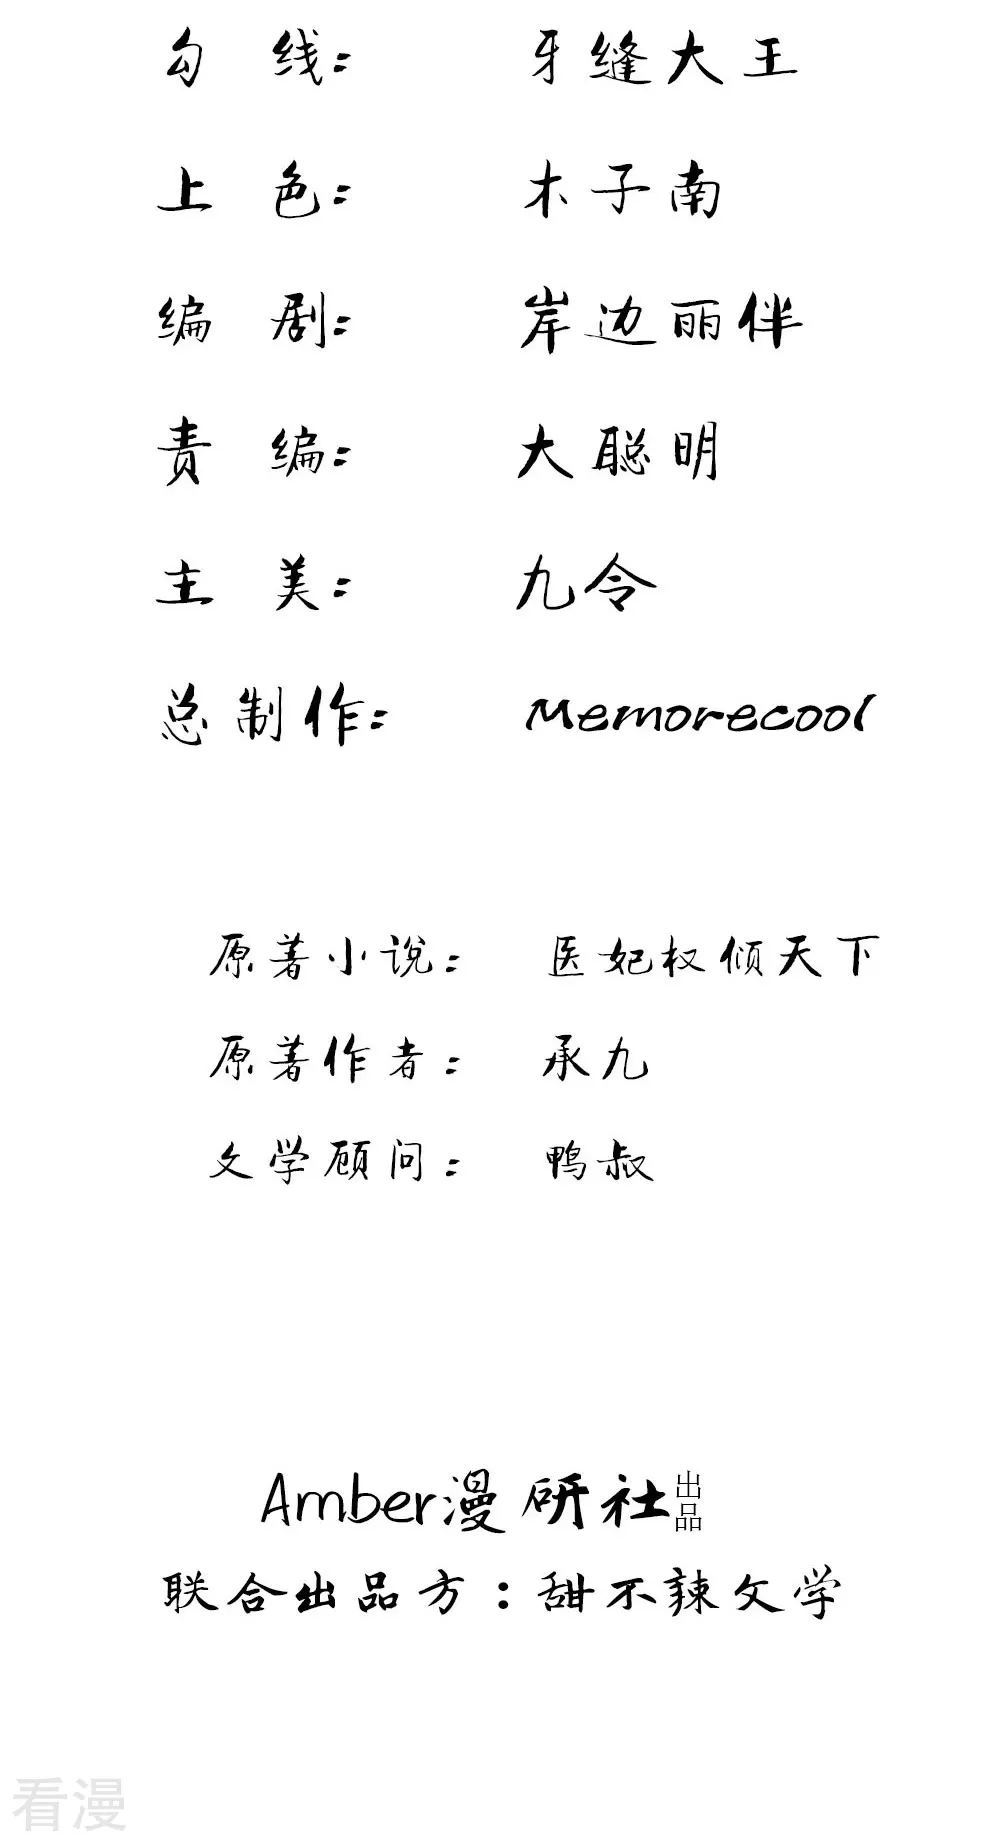 勾 线: 牙缝大王
上 色: 木子南
编 剧: 岸边丽伴
责 编: 大聪明
主 美: 九令
总制作: Memorecool
原著小说: 医妃权倾天下
原著作者: 承九
文学顾问: 鸭叔
Amber漫研社出品
联合出品方:甜不辣文学
看漫